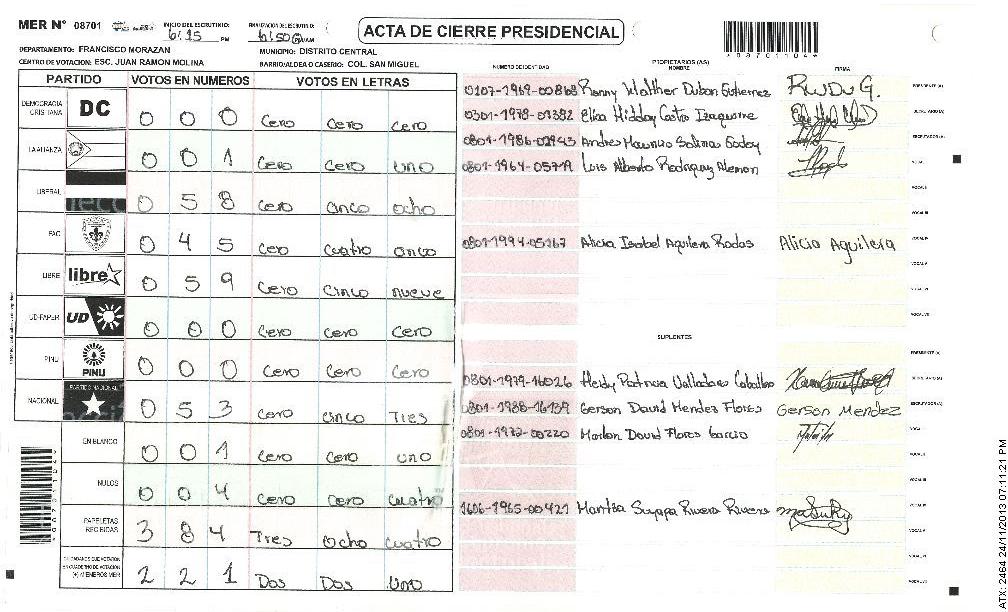 MER N° 08701 INICIO DEL ESCRUTINIO: 6:15 PM FINALIZACION DEL ESCRUTINIO: 6:50 PM/AM
ACTA DE CIERRE PRESIDENCIAL
*08701104*
DEPARTAMENTO: FRANCISCO MORAZAN MUNICIPIO: DISTRITO CENTRAL
CENTRO DE VOTACION: ESC. JUAN RAMON MOLINA BARRIO/ALDEA O CASERIO: COL. SAN MIGUEL
PARTIDO VOTOS EN NUMEROS VOTOS EN LETRAS
DEMOCRACIA CRISTIANA DC 0 0 0 Cero Cero Cero
LA ALIANZA 0 0 1 Cero Cero uno
LIBERAL 0 5 8 Cero cinco ocho
FAC 0 4 5 Cero cuatro cinco
LIBRE libre 0 5 9 Cero Cinco nueve
UD-FAPER UD 0 0 0 Cero Cero Cero
PINU PINU 0 0 0 Cero Cero Cero
NACIONAL PARTIDO NACIONAL 0 5 3 Cero Cinco Tres
EN BLANCO 0 0 1 Cero Cero uno
NULOS 0 0 4 Cero Cero cuatro
PAPELETAS RECIBIDAS 3 8 4 Tres Ocho Cuatro
CIUDADANOS QUE VOTARON EN CUADERNO DE VOTACION (+) MIEMBROS MER 2 2 1 Dos Dos Uno
PROPIETARIOS (AS)
NUMERO DE IDENTIDAD NOMBRE FIRMA
0107-1969-00868 Ronny Walther Dubon Gutierrez PRESIDENTE (A)
0301-1978-01382 SECRETARIO (A)
0801-1986-02943 Andres Mauricio Salinas Godoy ESCRUTADOR (A)
Luis Alberto Rodriguez Aleman VOCAL I
VOCAL II
VOCAL III
0801-1994-05267 Alicia Isabel Aguilera Rodas Alicia Aguilera VOCAL IV
VOCAL V
VOCAL VI
VOCAL VII
SUPLENTES
PRESIDENTE (A)
0801-1979-16026 Heidy Patricia Valladares Ceballos SECRETARIO (A)
0801-1988-16139 Gerson David Mendez Flores Gerson Mendez ESCRUTADOR (A)
0801-1972-00220 Marlon David Flores Garcia VOCAL I
VOCAL II
VOCAL III
1606-1965-00421 Maritza Suyapa Rivera Rivera VOCAL IV
VOCAL V
VOCAL VI
VOCAL VII
ATX: 2464 24/11/2013 07:11:21 PM